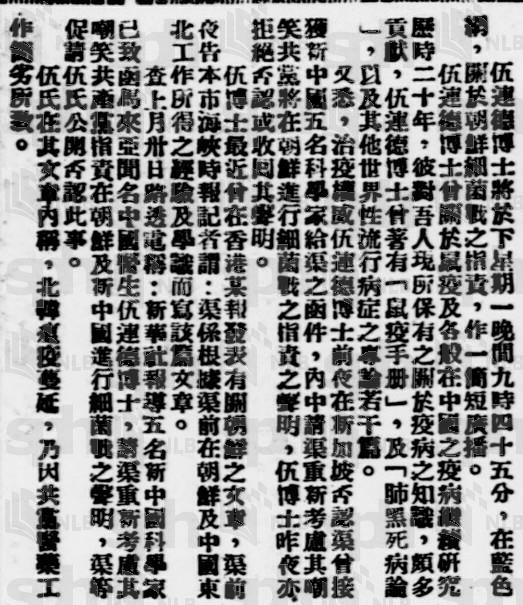 伍連德博士將於下星期一晚間九時四十五分，在藍色
網，關於朝鮮細菌戰之指責，作一簡短廣播。
伍連德博士曾關於鼠疫及各般在中國之疫病繼續研究
歷時二十年，彼對吾人現所保有之關於疫病之知識，頗多
貢獻，伍連德博士曾著有「鼠疫手册」，及「肺黑死病論
」，以及其他世界性流行病症之專論若干篇。
又悉，治疫權威伍連德博士前夜在新加坡否認渠曾接
獲新中國五名科學家給渠之函件，內中請渠重新考慮其嘲
笑共黨將在朝鮮進行細菌戰之指責之聲明，伍博士昨夜亦
拒絕否認或收回其聲明。
伍博士最近曾在香港某報發表有關朝鮮之文章，渠前
夜告本市海峽時報記者謂：渠係根據渠前在朝鮮及中國東
北工作所得之經驗及學識而寫該篇文章。
查上月卅日路透電稱：新華社報導五名新中國科學家
已致函馬來亞聞名中國醫生伍連德博士，請渠重新考慮其
嘲笑共產黨指責在朝鮮及新中國進行細菌戰之聲明，渠等
促請伍氏公開否認此事。
伍氏在其文章內稱，北韓痕疫蔓延，乃因共黨醫藥工
作惡劣所致。